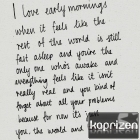 I love early mornings
when it feels like the
rest of the world is still
fast asleep and you're the
only one who's awake and
everything feels like it isn't
really real and you kind of
forget about all your problems
because for now it's just
you, the world and
kaprizen